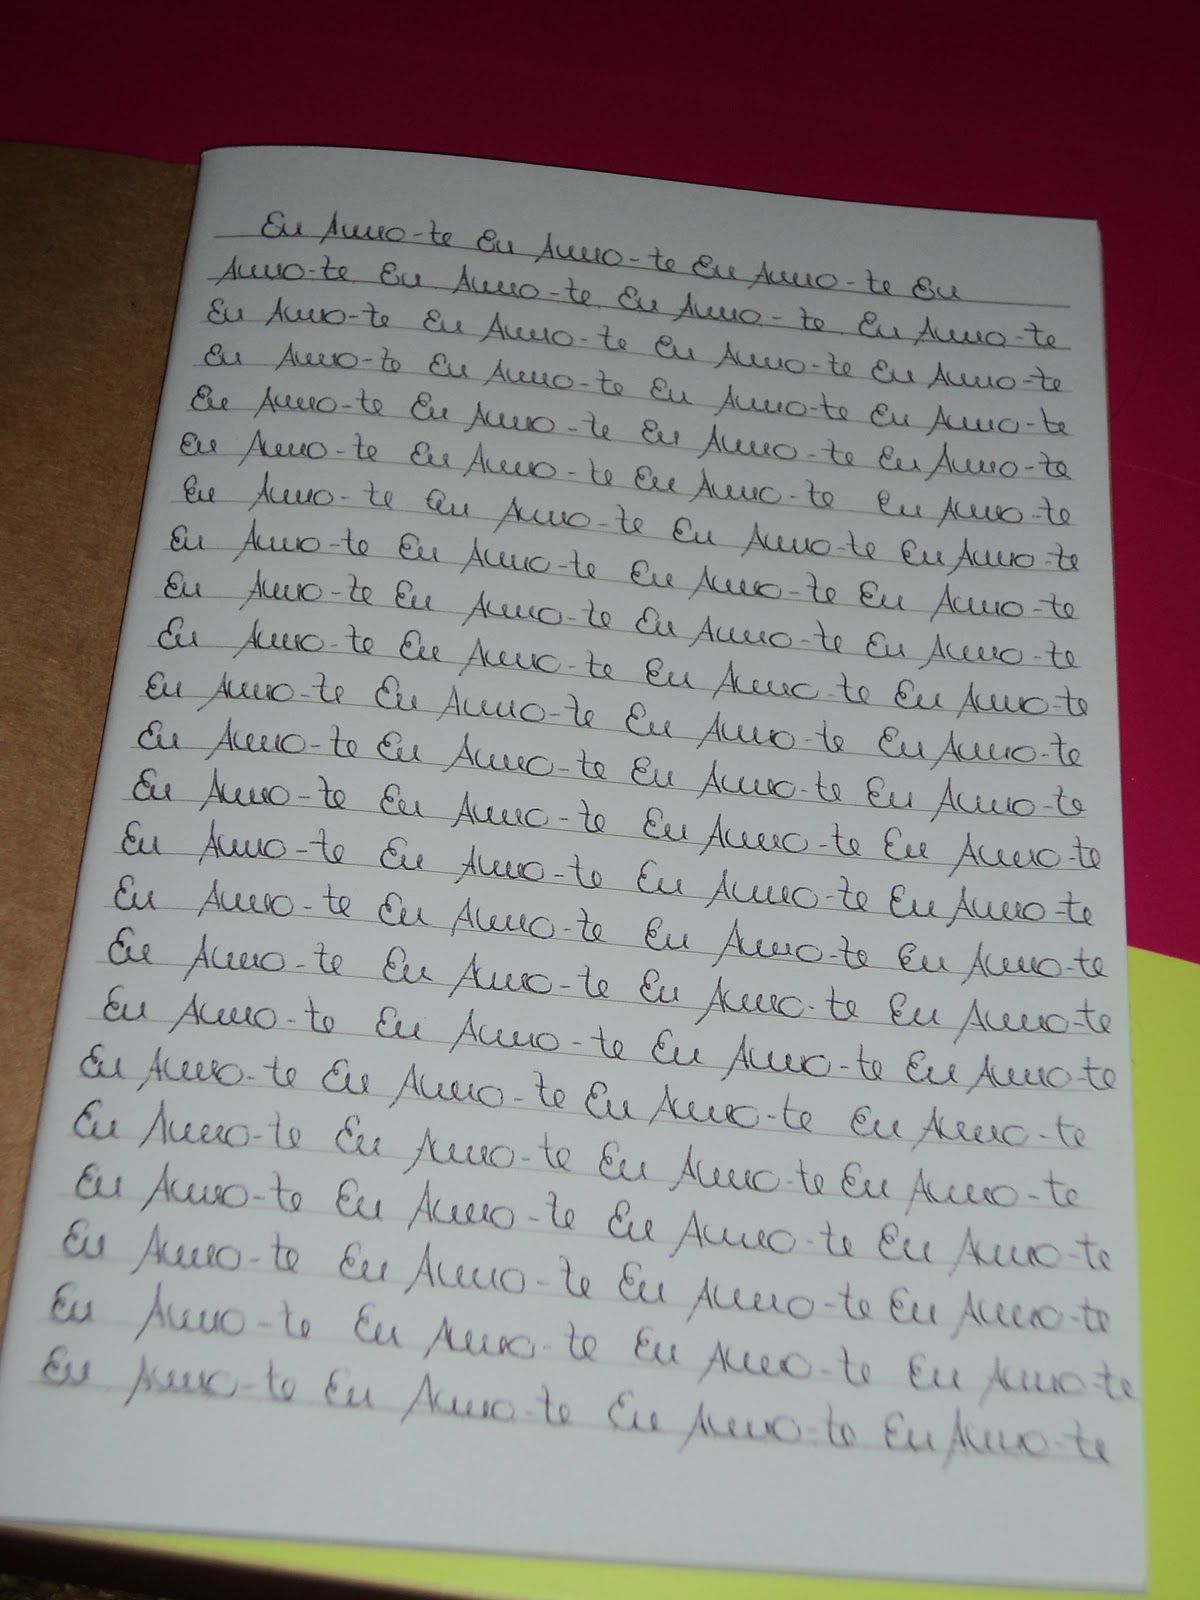 Eu Amo-te Eu Amo-te Eu Amo-te Eu
Amo-te Eu Amo-te Eu Amo-te Eu Amo-te
Eu Amo-te Eu Amo-te Eu Amo-te Eu Amo-te
Eu Amo-te Eu Amo-te Eu Amo-te Eu Amo-te
Eu Amo-te Eu Amo-te Eu Amo-te Eu Amo-te
Eu Amo-te Eu Amo-te Eu Amo-te Eu Amo-te
Eu Amo-te Eu Amo-te Eu Amo-te Eu Amo-te
Eu Amo-te Eu Amo-te Eu Amo-te Eu Amo-te
Eu Amo-te Eu Amo-te Eu Amo-te Eu Amo-te
Eu Amo-te Eu Amo-te Eu Amo-te Eu Amo-te
Eu Amo-te Eu Amo-te Eu Amo-te Eu Amo-te
Eu Amo-te Eu Amo-te Eu Amo-te Eu Amo-te
Eu Amo-te Eu Amo-te Eu Amo-te Eu Amo-te
Eu Amo-te Eu Amo-te Eu Amo-te Eu Amo-te
Eu Amo-te Eu Amo-te Eu Amo-te Eu Amo-te
Eu Amo-te Eu Amo-te Eu Amo-te Eu Amo-te
Eu Amo-te Eu Amo-te Eu Amo-te Eu Amo-te
Eu Amo-te Eu Amo-te Eu Amo-te Eu Amo-te
Eu Amo-te Eu Amo-te Eu Amo-te Eu Amo-te
Eu Amo-te Eu Amo-te Eu Amo-te Eu Amo-te
Eu Amo-te Eu Amo-te Eu Amo-te Eu Amo-te
Eu Amo-te Eu Amo-te Eu Amo-te Eu Amo-te
Eu Amo-te Eu Amo-te Eu Amo-te Eu Amo-te